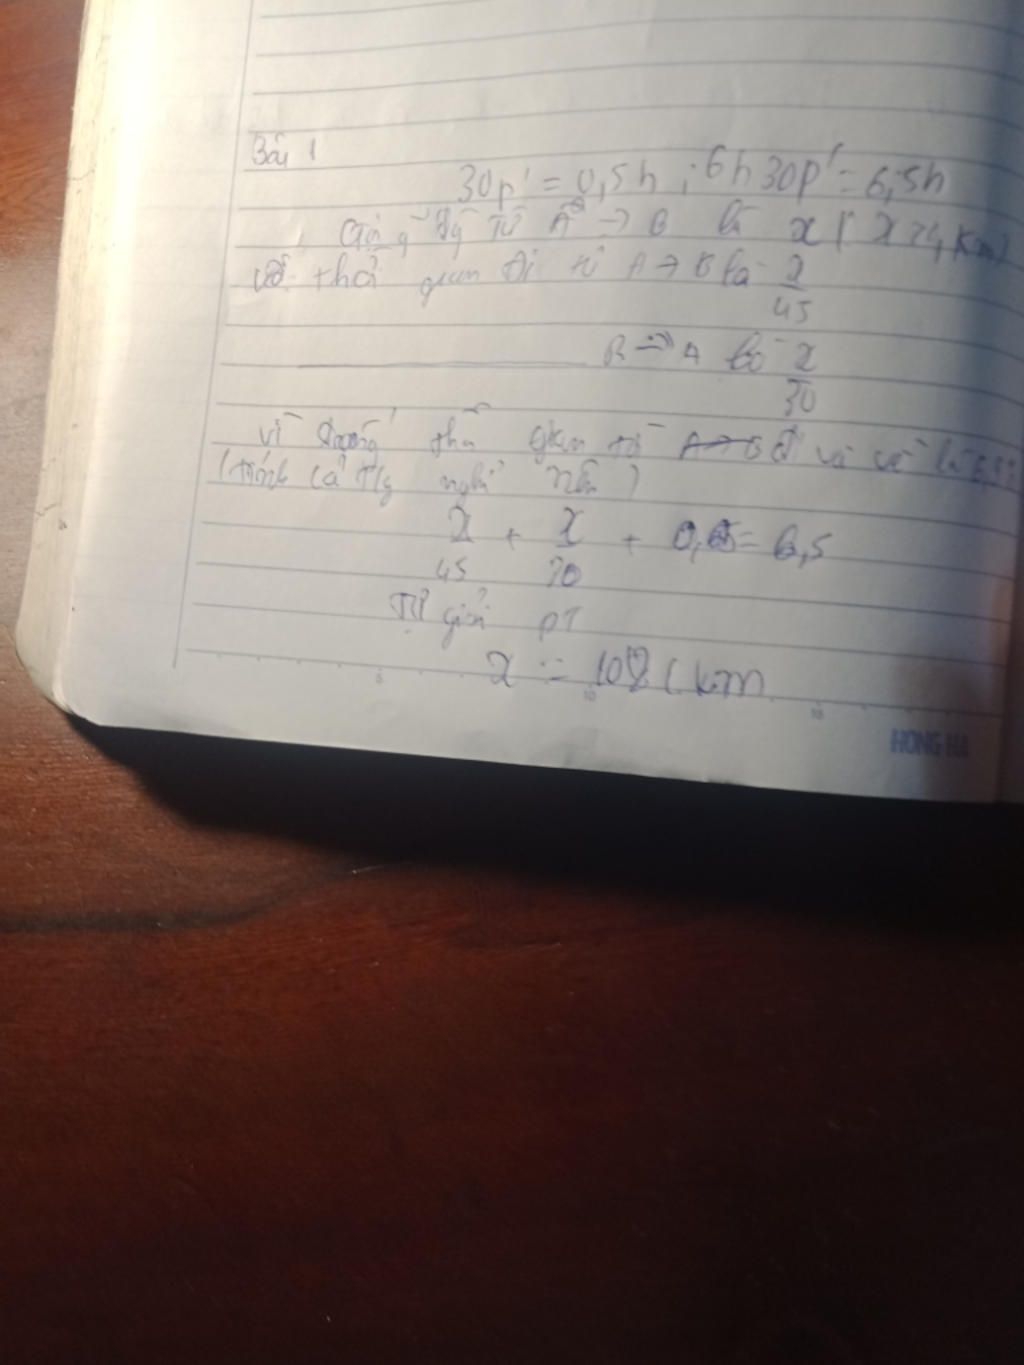 Bài 1
30p' = 0,5h ; 6h30p' = 6,5h
Gọi q đg từ A → B là x ( x > , km)
thời gian đi từ A → B là x/45
B → A là x/30
vì thời gian đi và về là 6,5
(tính cả tg nghỉ nên)
x/45 + x/30 + 0,5 = 6,5
Tự giải PT
x = 108 (km
5 10 15
HONG HA